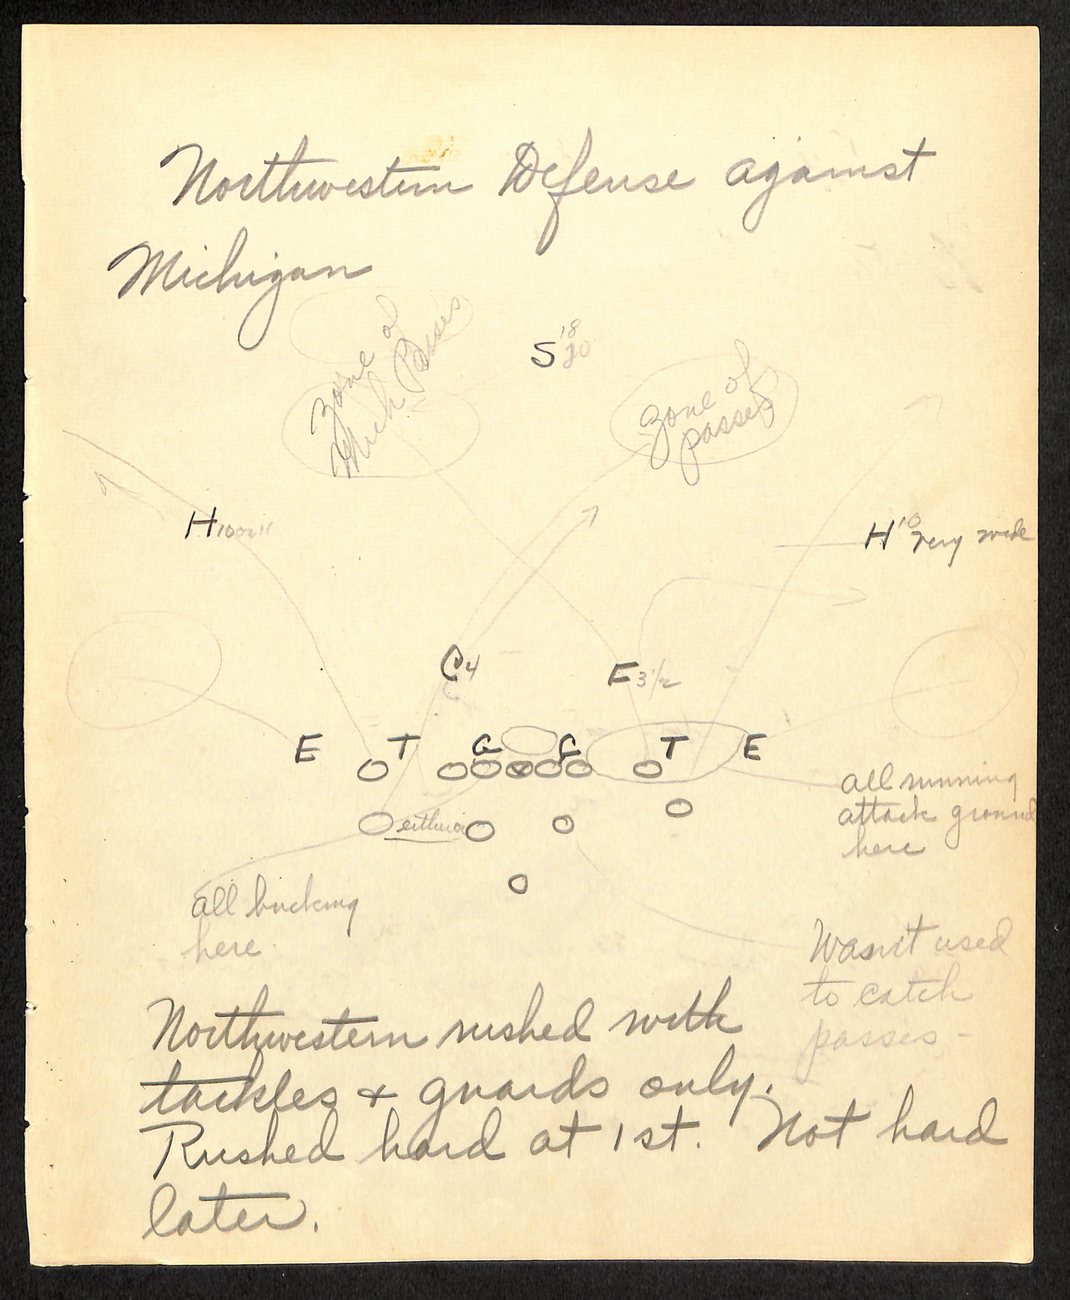 Northwestern Defense against
Michigan
S 18 20
zone of
Mich Passes
zone of
passes
H 10 or 11
H 10 very wide
C 4
F 3 1/2
E T G G T E
either
all running
attack ground
here
all bucking
here
Wasn't used
to catch
passes -
Northwestern rushed with
tackles & guards only.
Rushed hard at 1st. Not hard
later.